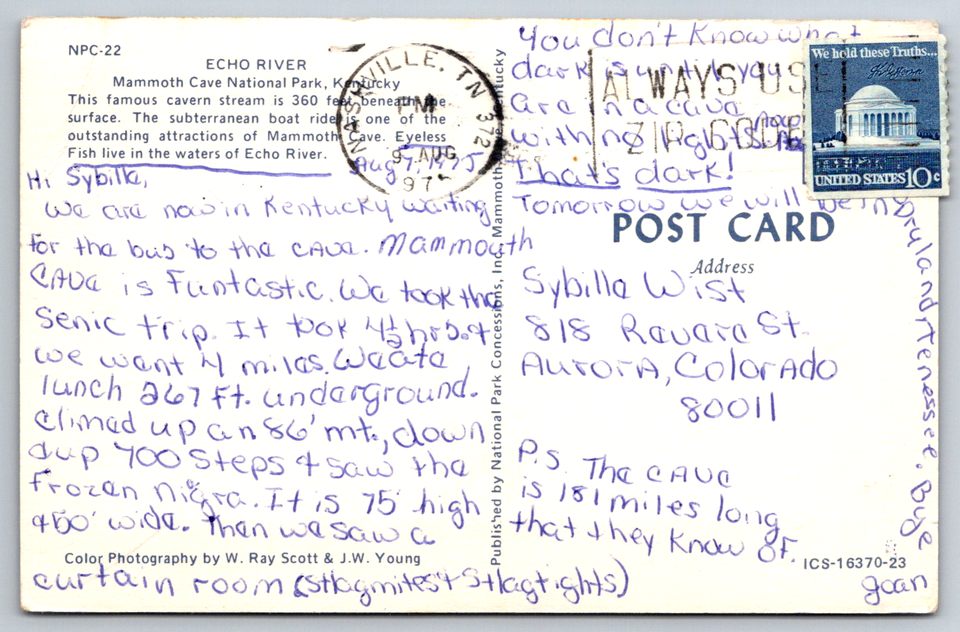 NPC-22
ECHO RIVER
Mammoth Cave National Park, Kentucky
This famous cavern stream is 360 feet beneath the
surface. The subterranean boat ride is one of the
outstanding attractions of Mammoth Cave. Eyeless
Fish live in the waters of Echo River.
NASHVILLE, TN
PM
9 AUG
197
372
ALWAYS USE
ZIP CODE
We hold these Truths...
UNITED STATES 10c
Aug 7, 1975
Hi Sybilla,
We are now in Kentucky waiting
for the bus to the cave. Mammouth
Cave is Funtastic. We took the
senic trip. It took 4½ hrs. &
we want 4 miles. We ate
lunch 267 Ft. underground.
climed up an 86' mt., down
&up 700 steps & saw the
frozen Nigra. It is 75' high
&50' wide. Then we saw a
curtain room (stlagmites & Stlagtights)
You don't know what
dark is until you
are in a cave
with no lights. Now
that's dark!
Tomorrow we will be in
Dryland, Tenessee. Bye
Joan
POST CARD
Address
Sybilla Wist
818 Revere St.
Aurora, Colorado
80011
P.S. The cave
is 181 miles long
that they know of.
Published by National Park Concessions, Inc., Mammoth Cave, Kentucky
Color Photography by W. Ray Scott & J.W. Young
ICS-16370-23